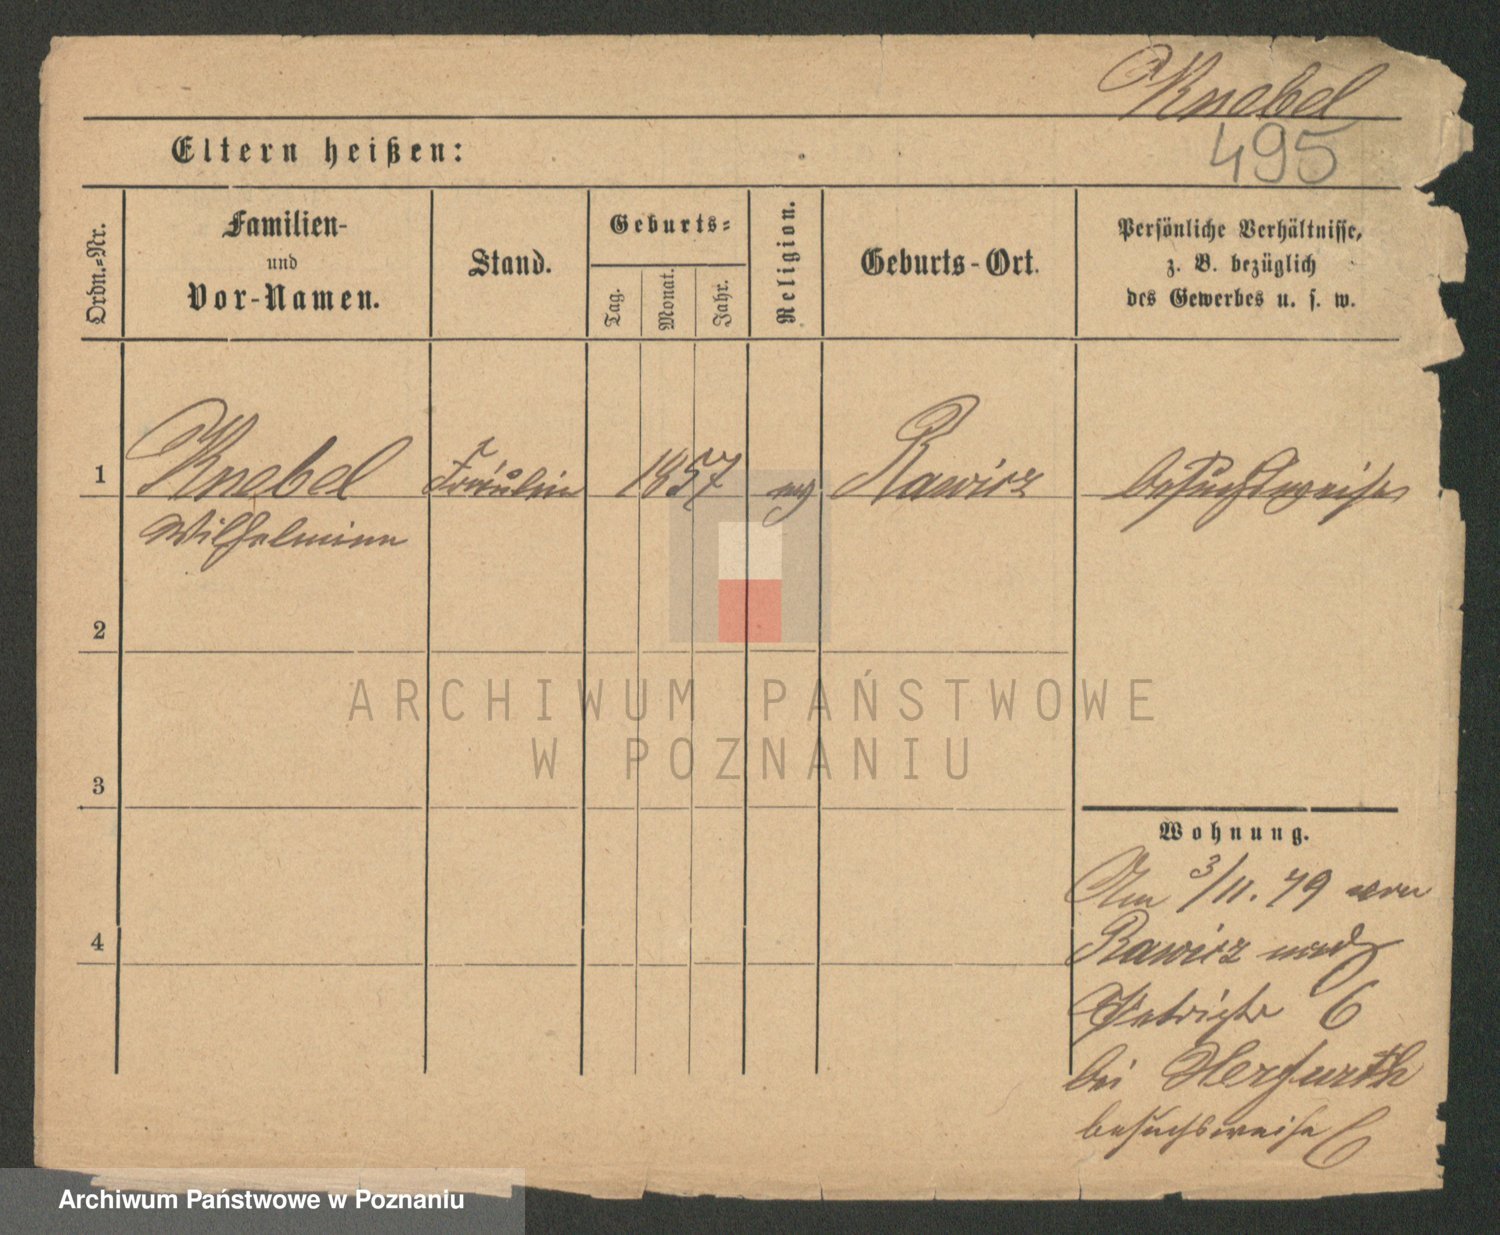 Knebel
495
Eltern heißen:
Ordn.-Nr.
Familien-
und
Vor-Namen.
Stand.
Geburts-
Tag.
Monat.
Jahr.
Religion.
Geburts-Ort.
Persönliche Verhältnisse,
z. B. bezüglich
des Gewerbes u. s. w.
1 Knebel Fräulein 1857 ev Rawicz besuchsweise
Wilhelmine
2
3
4
Wohnung.
Am 3/11. 79 von
Rawicz nach
6
bei Herfurth
besuchsweise
ARCHIWUM PAŃSTWOWE
W POZNANIU
Archiwum Państwowe w Poznaniu